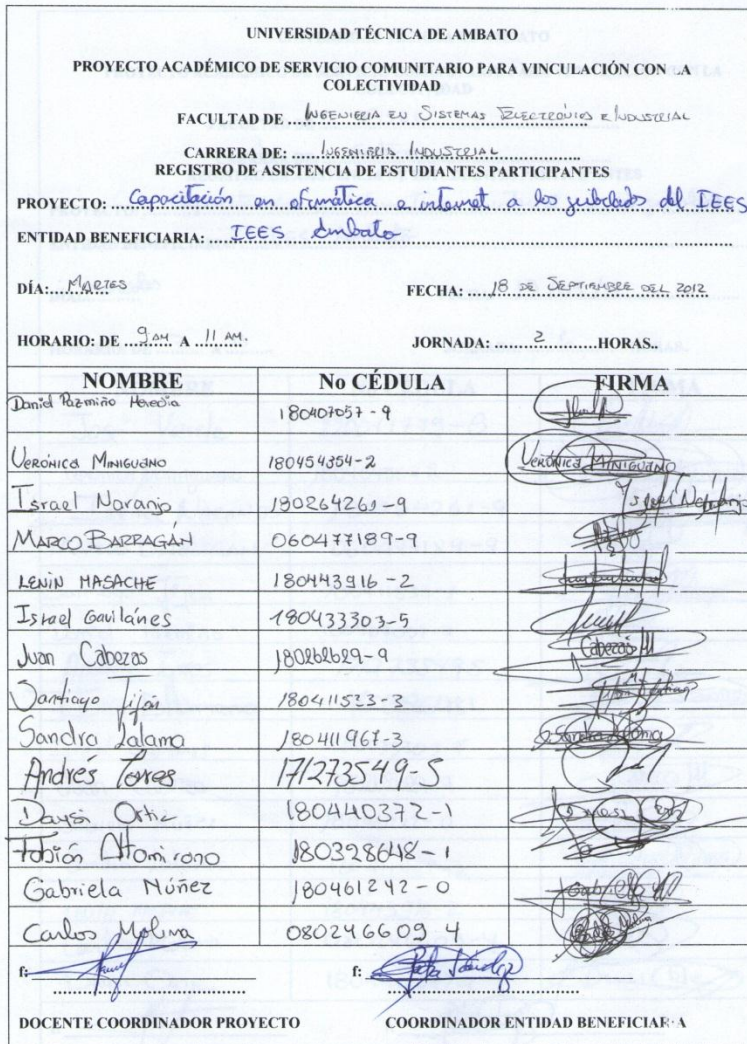 UNIVERSIDAD TÉCNICA DE AMBATO
PROYECTO ACADÉMICO DE SERVICIO COMUNITARIO PARA VINCULACIÓN CON LA
COLECTIVIDAD
FACULTAD DE INGENIERIA EN SISTEMAS ELECTRÓNICA E INDUSTRIAL
CARRERA DE: INGENIERIA INDUSTRIAL
REGISTRO DE ASISTENCIA DE ESTUDIANTES PARTICIPANTES
PROYECTO: Capacitación en ofimática e internet a los jubilados del IEES
ENTIDAD BENEFICIARIA: IEES Ambato
DÍA: MARTES FECHA: 18 DE SEPTIEMBRE DEL 2012
HORARIO: DE 9 AM A 11 AM. JORNADA: 2 HORAS.
NOMBRE No CÉDULA FIRMA
Daniel Pazmiño Heredia 180407057-9
VERÓNICA MINIGUANO 180454354-2 VERÓNICA MINIGUANO
Israel Naranjo 180264261-9 Israel Naranjo
MARCO BARRAGÁN 060477189-9
LENIN MASACHE 180443916-2
Israel Gavilánes 180433303-5
Juan Cabezas 180262629-9 Cabezas
Santiago 180411523-3
Sandra Lalama 180411967-3 Sandra Lalama
Andrés Torres 171273549-5
Ortiz 180440372-1
Fabián Altamirano 180328648-1
Gabriela Núñez 180461242-0 Gabriela
Carlos Molina 080246609 4
f: f:
DOCENTE COORDINADOR PROYECTO COORDINADOR ENTIDAD BENEFICIARIA